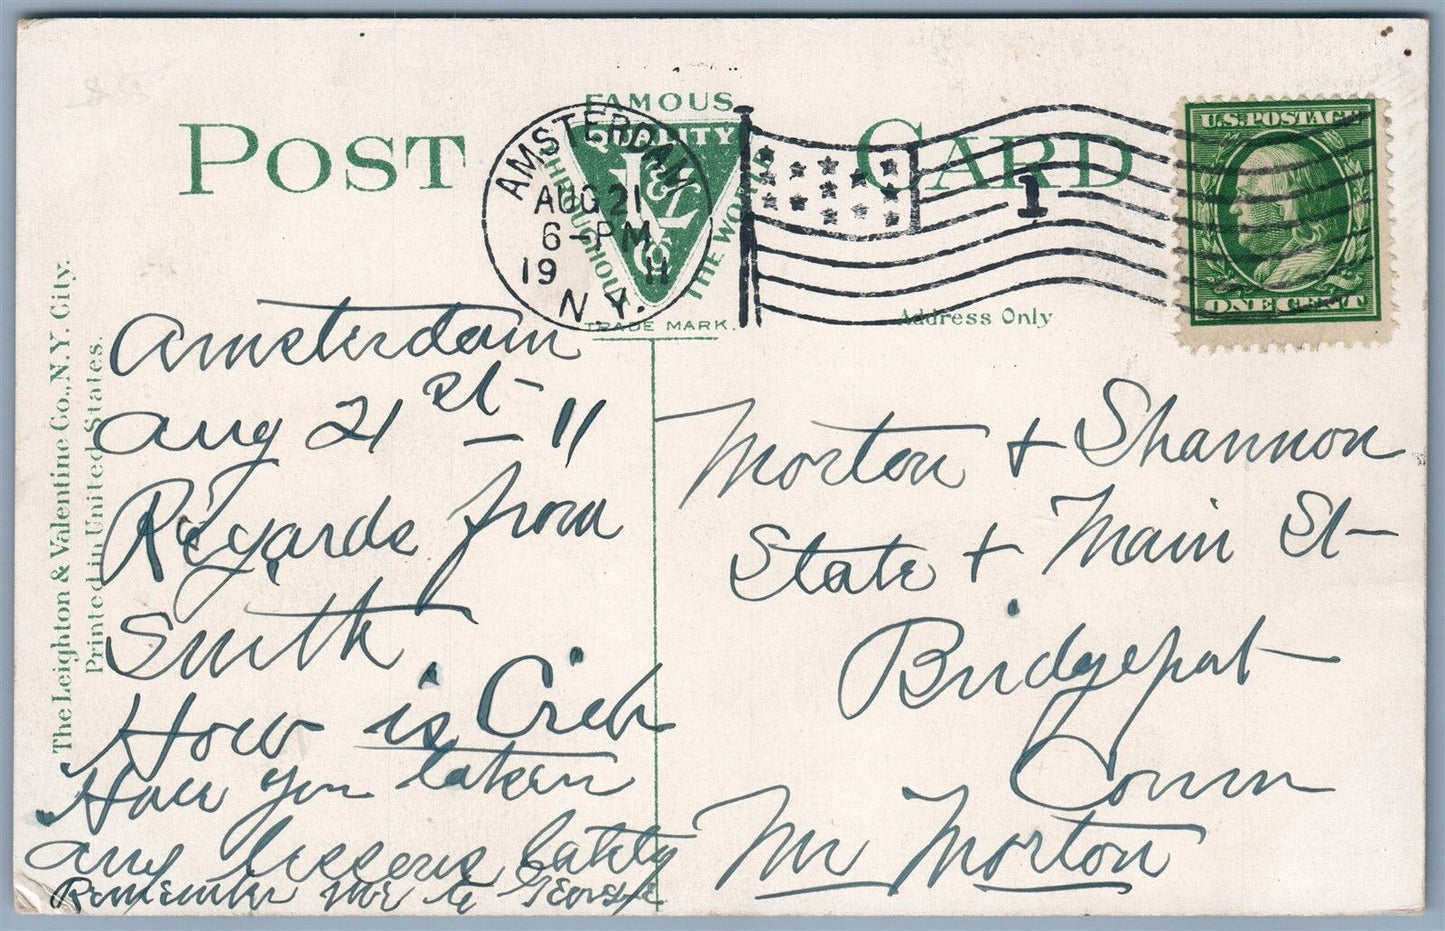 POST CARD
FAMOUS
QUALITY
THROUGHOUT THE WORLD
L&V Co
TRADE MARK.
AMSTERDAM
AUG 21
6-PM
19 11
N.Y.
1
U.S. POSTAGE
ONE CENT
Address Only
The Leighton & Valentine Co., N.Y. City.
Printed in United States.
Amsterdam
Aug 21st - 11
Regards from
Smith
How is
Have you taken
any lessons lately
Remember me to George
Morton + Shannon
State + Main St
Bridgeport
Conn
Mr Morton